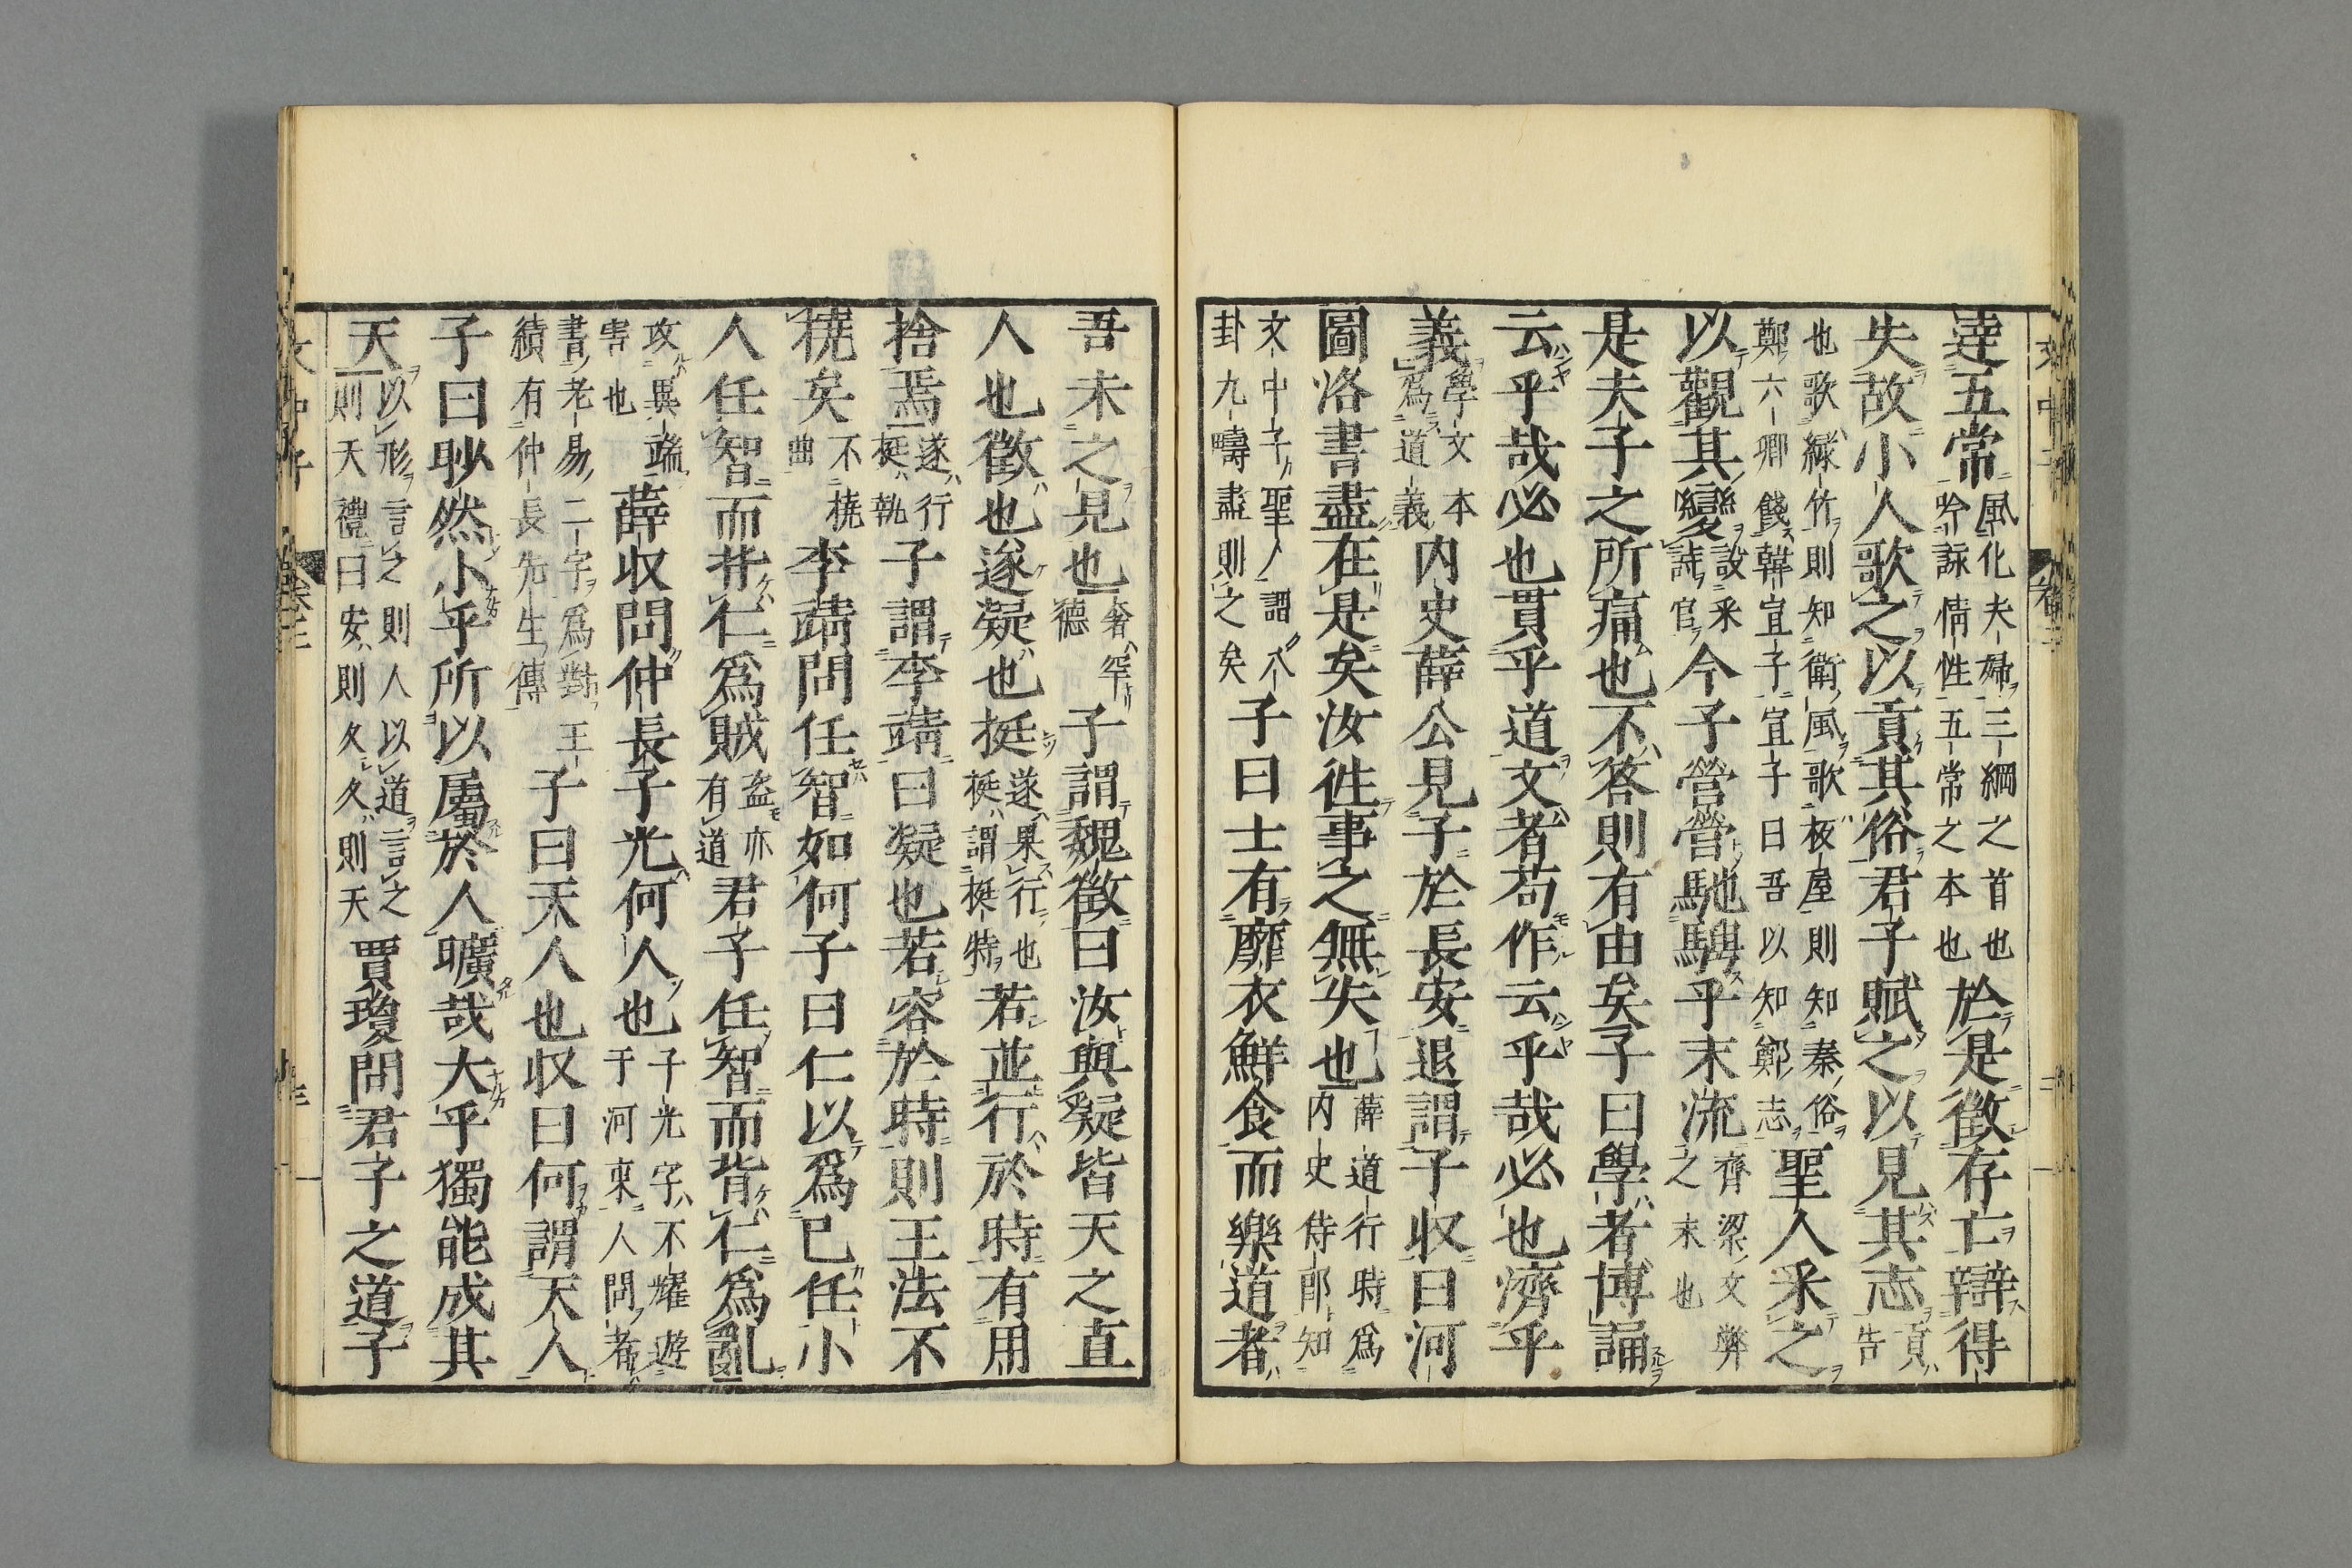 達五常風化夫婦三綱之首也吟詠情性五常之本也於是徴存亡辯得
失故小人歌之以貢其俗君子賦之以見其志貢告
也歌緑竹則知衛風歌板屋則知秦俗鄭六卿餞韓宣子宣子曰吾以知鄭志聖人采之
以觀其變設采詩官今子營營馳騁乎末流齊梁文弊之末也
是夫子之所痛也不答則有由矣子曰學者博誦
云乎哉必也貫乎道文者苟作云乎哉必也濟乎
義學文本為道義内史薛公見子於長安退謂子収曰河
圖洛書盡在是矣汝徃事之無失也薛道行時爲内史侍郎知
文中子聖人謂八卦九疇盡則之矣子曰士有靡衣鮮食而樂道者
吾未之見也奢罕德子謂魏徴曰汝與凝皆天之直
人也徴也遂凝也挺遂果行也挺謂挺特若並行於時有用
捨焉遂行挺執子謂李靖曰凝也若容於時則王法不
撓矣不撓曲李靖問任智如何子曰仁以爲已任小
人任智而背仁爲賊盗亦有道君子任智而背仁爲亂
攻異端害也薛収問仲長子光何人也子光字不耀遊于河東人問者
書老易二字爲對王績有仲長先生傳子曰天人也収曰何謂天人
子曰眇然小乎所以屬於人曠哉大乎獨能成其
天以形言之則人以道言之則天禮曰安則久久則天賈瓊問君子之道子